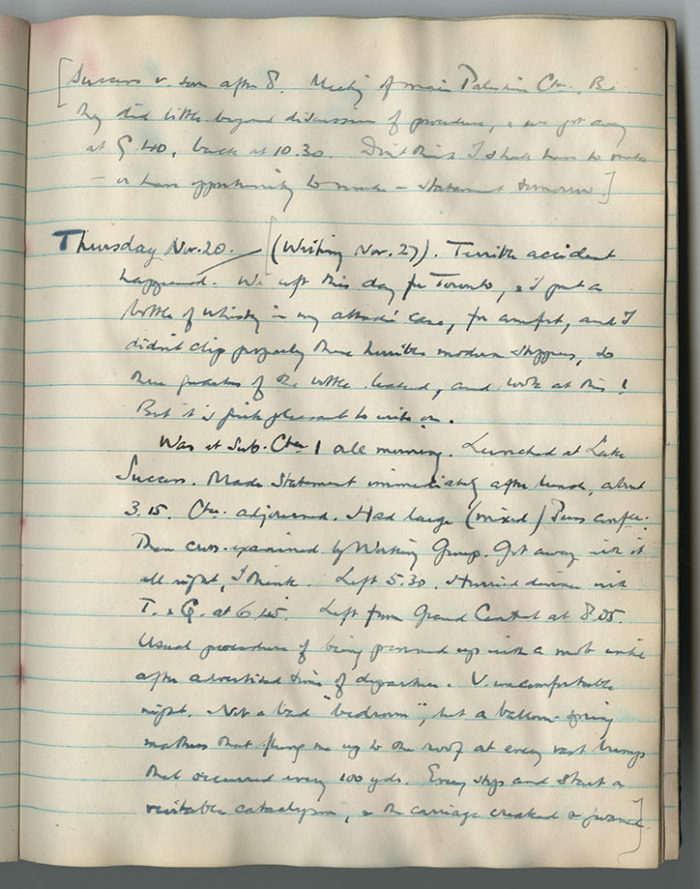 [Success v. soon after 8. Meeting of main Palestine Ctee. But
they did little beyond discussion of procedure, & we got away
at 9.40, back at 10.30. Don't think I shall have to make
– or have opportunity to make – statement tomorrow]
Thursday Nov. 20. (Writing Nov. 27). Terrible accident
happened. We left this day for Toronto, & I put a
bottle of whisky in my attaché case, for comfort, and I
didn't clip properly these horrible modern stoppers, so
three quarters of the bottle leaked, and look at this!
But it is quite pleasant to write on.
Was at Sub. Ctee 1 all morning. Lunched at Lake
Success. Made Statement immediately after lunch, about
3.15. Ctee. adjourned. Had large (mixed) Press confce.
Then cross-examined by Working Group. Got away with it
all right, I think. Left 5.30. Hurried dinner with
T. & G. at 6.45. Left from Grand Central at 8.05.
Usual procedure of being penned up with a mob until
after advertised time of departure. V. uncomfortable
night. Not a bad "bedroom", but a balloon-spring
mattress that flung me up to the roof at every vast bump
that occurred every 100 yds. Every stop and start a
veritable cataclysm, & the carriage creaked & groaned.]